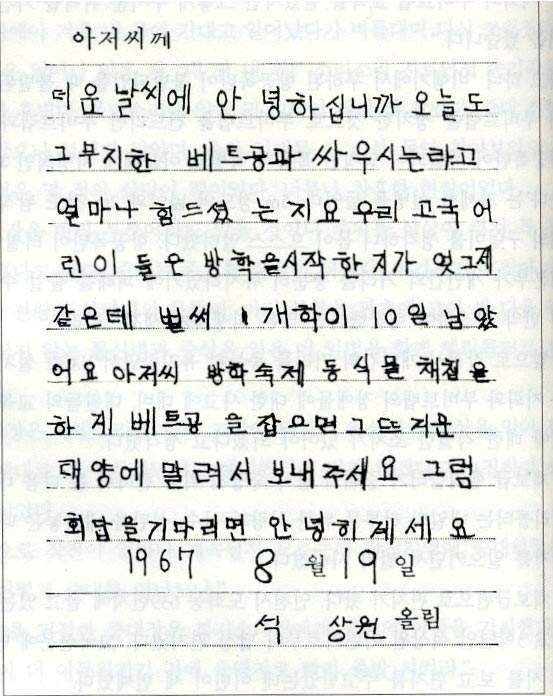 아저씨께
더운 날씨에 안녕하십니까 오늘도
그무지한 베트콩과 싸우시는라고
얼마나 힘드셨는지요 우리 고국 어
린이들은 방학을시작한지가 엊그제
같은데 벌써 개학이 10일 남았
어요 아저씨 방학숙제 동식물 채집을
하게 베트콩을 잡으면 그 뜨거운
태양에 말려서 보내주세요 그럼
회답을기다리면 안녕히게세요
1967 8월 19일
석 상원 올림